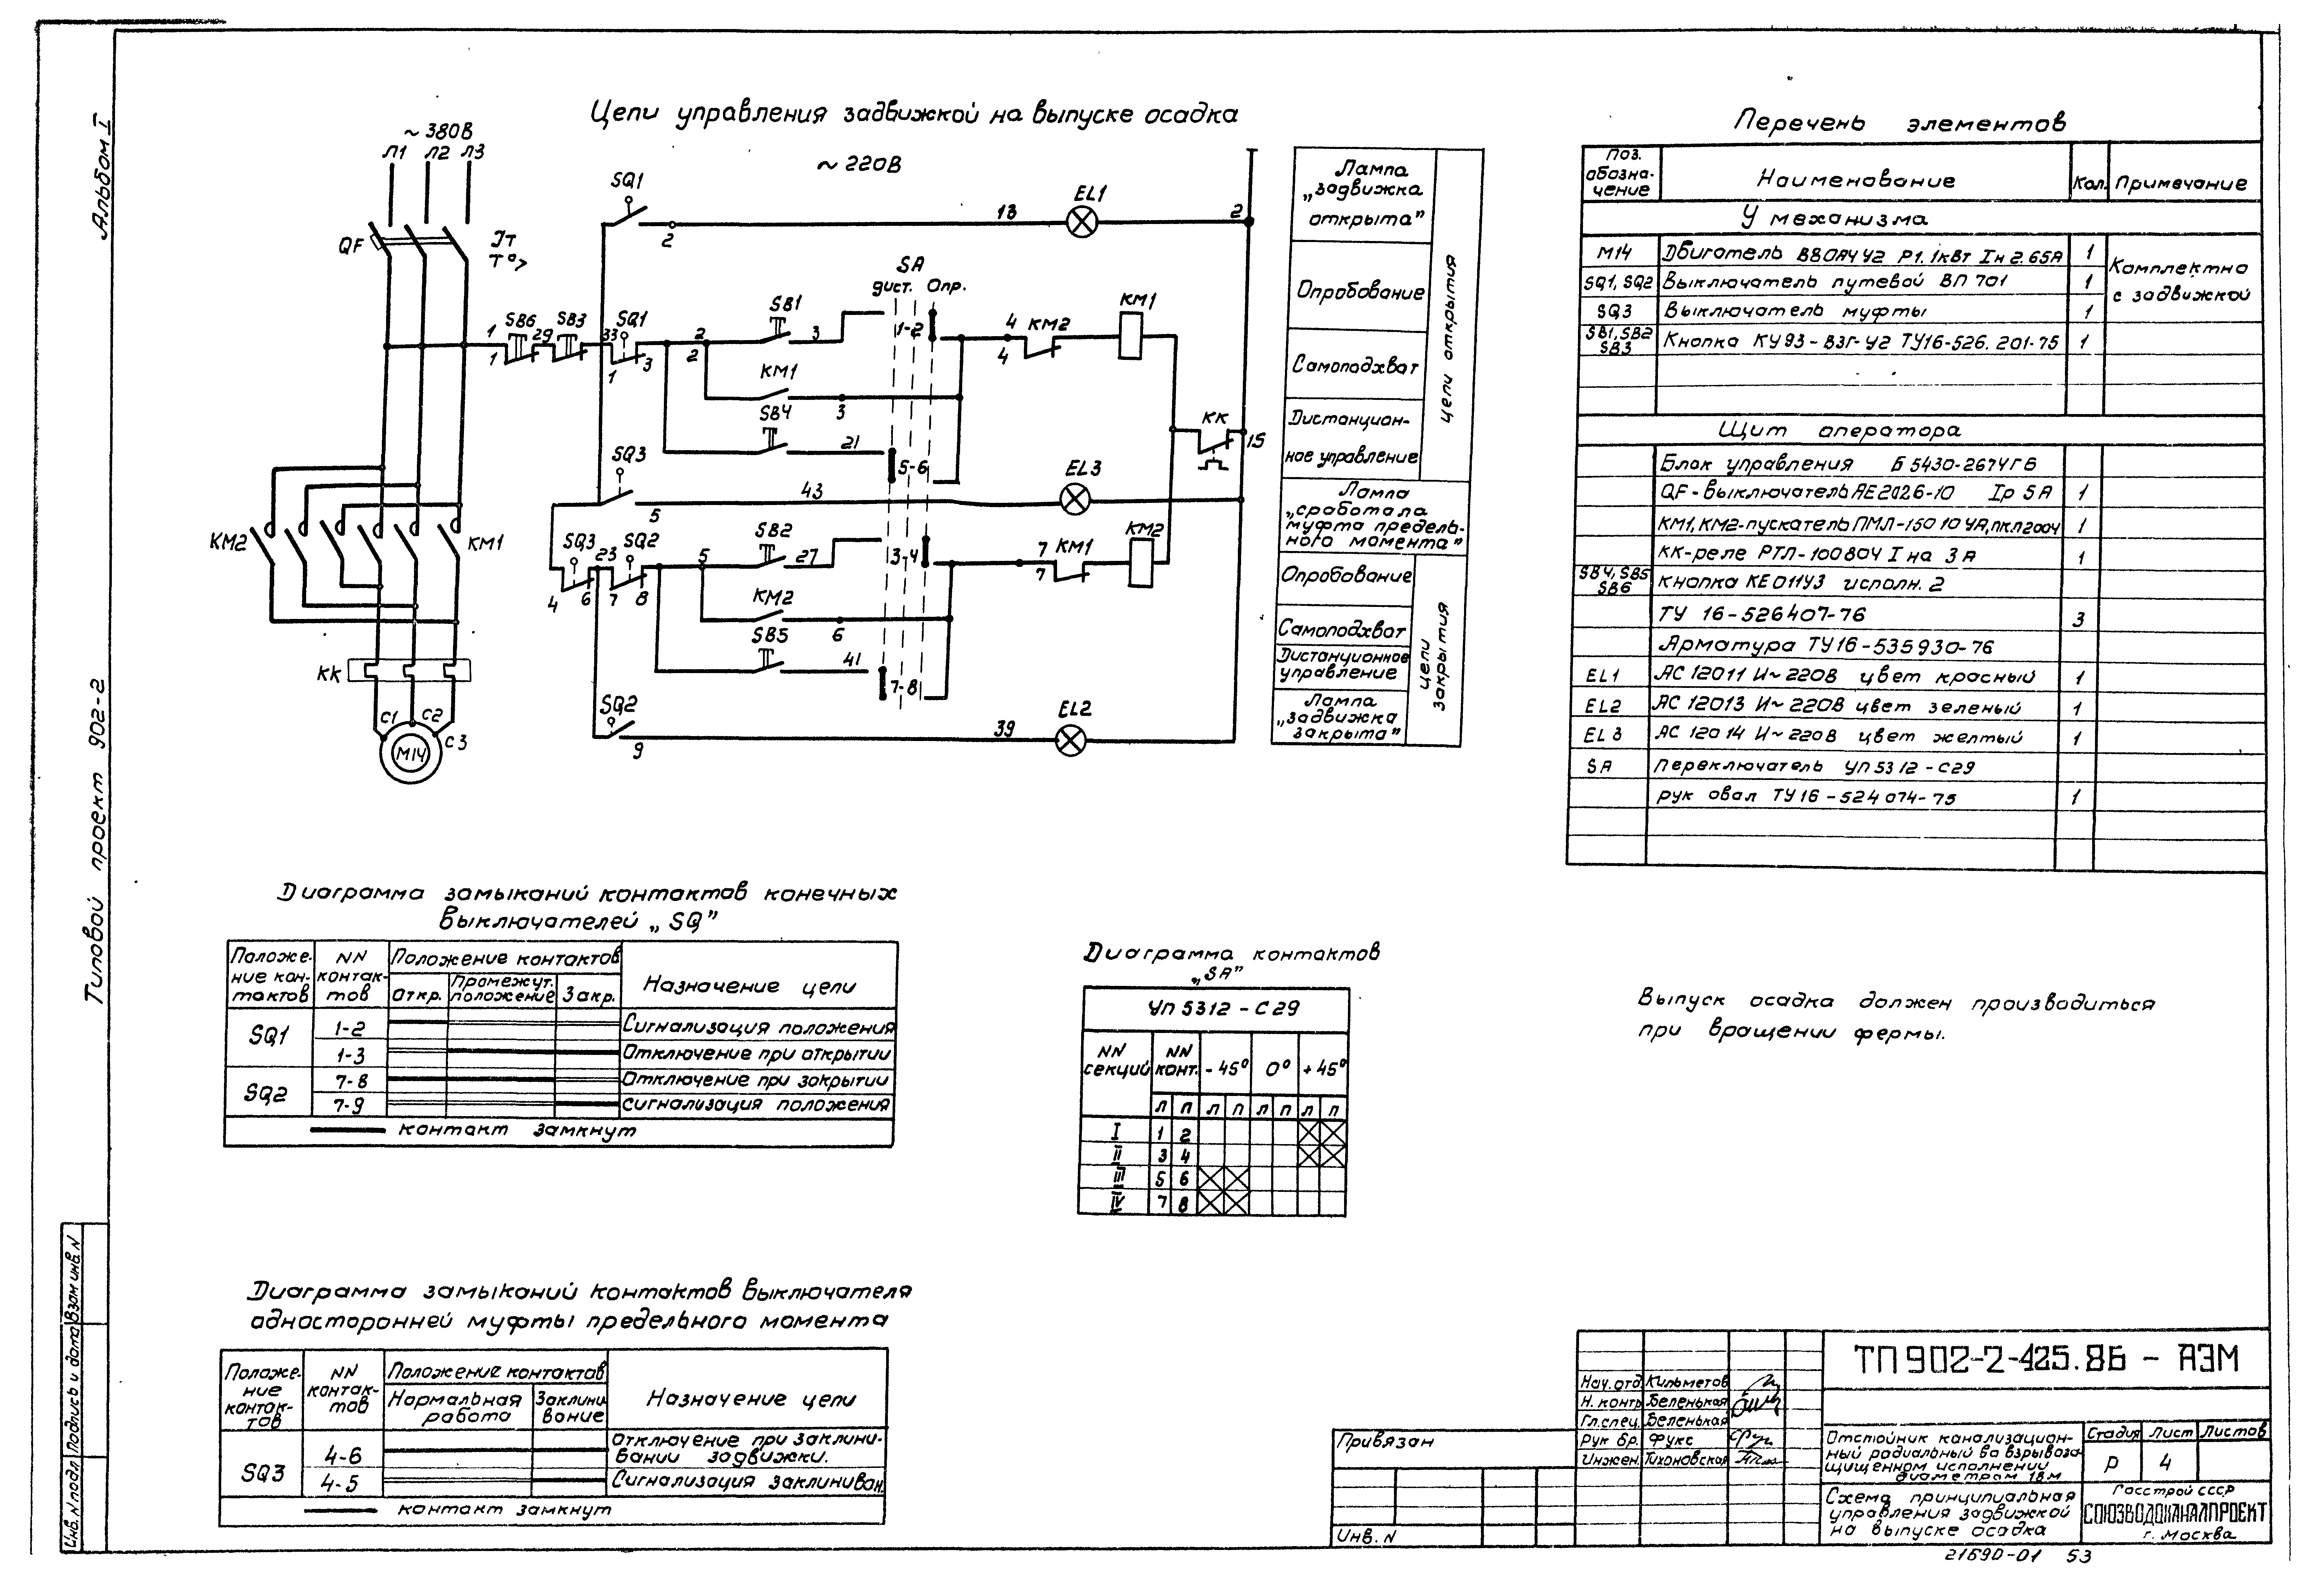 Альбом I
Типовой проект 902-2
Цепи управления задвижкой на выпуске осадка
~380В
Л1 Л2 Л3
~220В
QF
Iт
T°>
SQ1
2
13
EL1
2
SA
дист. Опр.
1
1
SB6
29
SB3
33
SQ1
1
3
2
2
SB1
3
1-2
4
4
KM2
KM1
KM1
3
SB4
21
5-6
KK
15
SQ3
5
43
EL3
KM2
KM1
4
SQ3
6
23
SQ2
7
8
5
SB2
27
3-4
7
7
KM1
KM2
KM2
6
SB5
41
7-8
SQ2
9
39
EL2
KK
C1
C2
C3
М14
Лампа
„задвижка
открыта”
Опробование
Самоподхват
Дистанцион-
ное управление
Цепи открытия
Лампа
„сработала
муфта предель-
ного момента”
Опробование
Самоподхват
Дистанционное
управление
Лампа
„задвижка
закрыта”
Цепи
закрытия
Перечень элементов
Поз. обозна-чение Наименование Кол. Примечание
У механизма
М14 Двигатель В80А4У2 Р1.1кВт Iн 2.65А 1 Комплектно
SQ1, SQ2 Выключатель путевой ВП 701 1 с задвижкой
SQ3 Выключатель муфты 1
SB1, SB2 SB3 Кнопка КУ93-ВЗГ-У2 ТУ16-526.201-75 1
Щит оператора
Блок управления Б5430-2674ГБ
QF-выключатель АЕ2026-10 Iр 5А 1
КМ1, КМ2-пускатель ПМЛ-15010УА, ПКЛ2004 1
КК-реле РТЛ-100804 I на 3А 1
SB4, SB5 SB6 Кнопка КЕ011У3 исполн. 2
ТУ 16-526407-76 3
Арматура ТУ16-535930-76
EL1 АС 12011 И~220В цвет красный 1
EL2 АС 12013 И~220В цвет зеленый 1
EL3 АС 12014 И~220В цвет желтый 1
SA Переключатель УП5312-С29
рук овал ТУ16-524074-75 1
Диаграмма замыканий контактов конечных
выключателей „SQ”
Положе-ние кон-тактов NN контак-тов Положение контактов Назначение цепи
Откр. Промежут. положение Закр.
SQ1 1-2 Сигнализация положения
1-3 Отключение при открытии
SQ2 7-8 Отключение при закрытии
7-9 Сигнализация положения
контакт замкнут
Диаграмма контактов
„SA”
УП5312-С29
NN секций NN конт. -45° 0° +45°
Л П Л П Л П Л П
I 1 2
II 3 4
III 5 6
IV 7 8
Выпуск осадка должен производиться
при вращении фермы.
Диаграмма замыканий контактов выключателя
односторонней муфты предельного момента
Положе-ние контак-тов NN контак-тов Положение контактов Назначение цепи
Нормальная работа Заклини вание
SQ3 4-6 Отключение при заклини-вании задвижки.
4-5 Сигнализация заклиниван.
контакт замкнут
Взам инв. N
Подпись и дата
Инв. N подл
Привязан
Инв. N
Нач. отд. Кильметов
Н. контр Беленькая
Гл. спец. Беленькая
Рук бр. Фукс
Инжен. Тихоновская
ТП 902-2-425.86 - АЭМ
Отстойник канализацион-
ный радиальный во взрывоза-
щищенном исполнении
диаметром 18м
Стадия Лист Листов
Р 4
Схема принципиальная
управления задвижкой
на выпуске осадка
Госстрой СССР
СОЮЗВОДОКАНАЛПРОЕКТ
г. Москва
21690-01 53